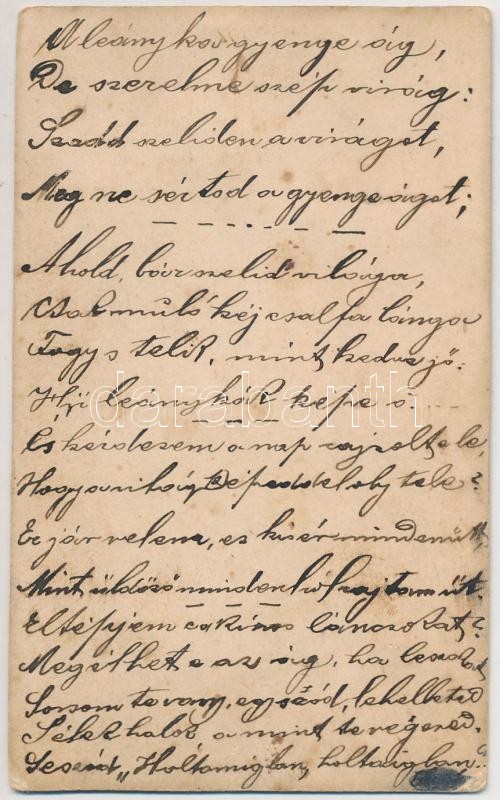 A leányka gyenge ág,
De szerelme szép virág:
Szedd szeliden a virágot,
Meg ne sértsd a gyenge ágot;
A hold, bár szelid világa,
Csak muló kéj csalfa lánga
Fogy s telik, mint kedve jő:
Ifjú leánykák képe ő.
darabanth
És kérdezem a nap rajzolt e le,
Hogy a világ képeddel oly tele?
Ez jár velem, ez kisér mindenütt,
Mint üldöző minden hol rajtam üt.
Eltépjem e kinos lánczokat?
Megélhet e az ág, ha leszakad
Sorsom te vagy, egy szód, lehelleted
S élek halok a mint te végezed.
"Holtomiglan, holtaiglan."